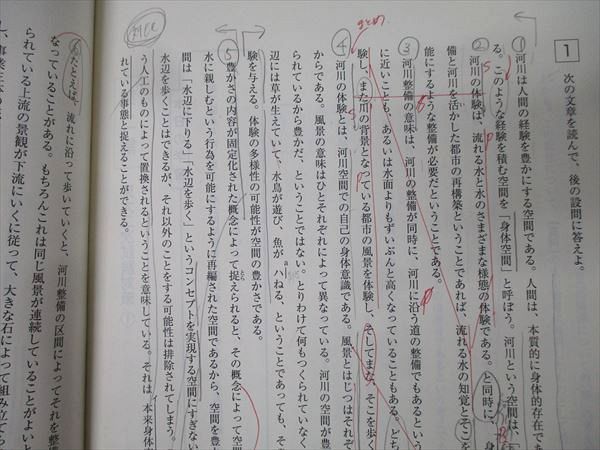 1
次の文章を読んで、後の設問に答えよ。
① 河川は人間の経験を豊かにする空間である。人間は、本質的に身体的存在であ
る。このような経験を積む空間を「身体空間」と呼ぼう。河川という空間は、
② 河川の体験は、流れる水と水のさまざまな様態の体験である。と同時に、身
備と河川を活かした都市の再構築ということであれば、流れる水の知覚とそこを
能にするような整備が必要だということである。
③ 河川整備の意味は、河川の整備が同時に、河川に沿う道の整備でもあるという
に近いことも、あるいは水面よりもずいぶんと高くなっていることもある。どち
験し、また川の背景となっている都市の風景を体験し、そしてまた、そこを歩く
まとめ
④ 河川の体験とは、河川空間での自己の身体意識である。風景とはじつはそれぞ
からである。風景の意味はひとそれぞれによって異なっている。河川の空間が豊
られているから豊かだ、ということではない。とりわけて何もつくられていなく
辺には草が生えていて、水鳥が遊び、魚がaハねる、ということであっても、そ
験を与える。体験の多様性の可能性が空間の豊かさである。
⑤ 豊かさの内容が固定化された概念によって捉えられると、その概念によって空
水に親しむという行為を可能にするように再編された空間であるから、空間を豊
間は「水辺に下りる」「水辺を歩く」というコンセプトを実現する空間にすぎない
水辺を歩くことはできるが、それ以外のことをする可能性は排除されてしまう。
う人工のものによって置換されるということを意味している。それは、本来身体
れている事態と捉えることができる。
⑥ たとえば、流れに沿って歩いていくと、河川整備の区間によってそれを整備
なっていることがある。もちろんこれは同じ風景が連続していることがよいと
られている上流の景観が下流にいくに従って、大きな石によって組み立てら